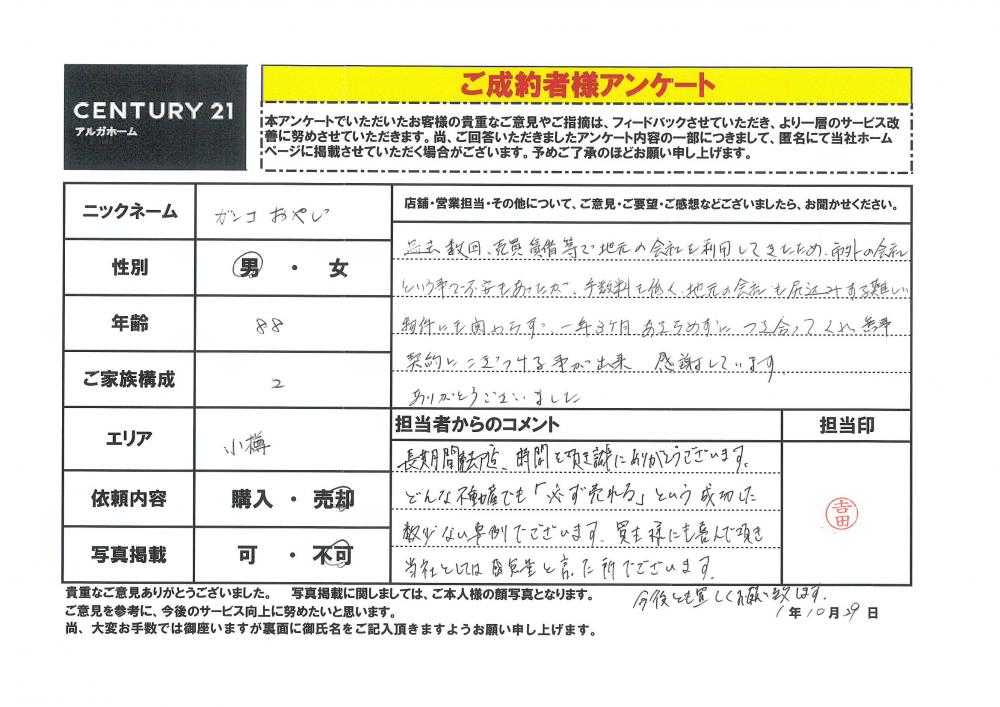 CENTURY 21
アルガホーム
ご成約者様アンケート
本アンケートでいただいたお客様の貴重なご意見やご指摘は、フィードバックさせていただき、より一層のサービス改
善に努めさせていただきます。尚、ご回答いただきましたアンケート内容の一部につきまして、匿名にて当社ホーム
ページに掲載させていただく場合がございます。予めご了承のほどお願い申し上げます。
ニックネーム ガンコおやじ
性別 男 ・ 女
年齢 88
ご家族構成 2
エリア 小樽
依頼内容 購入 ・ 売却
写真掲載 可 ・ 不可
店舗・営業担当・その他について、ご意見・ご要望・ご感想などございましたら、お聞かせください。
過去、数回、売買賃借等で地元の会社を利用してきたため、市外の会社
という事で不安もあったが、手数料も低く、地元の会社も尻込みする難しい
物件にも関わらず、一年3ヶ月あきらめずにつき合ってくれ無事
契約にこぎつける事が出来 感謝しています
ありがとうございました
担当者からのコメント
長期間 時間を頂き誠にありがとうございます。
どんな不動産でも「必ず売れる」という成功した
数少ない事例でございます。買主様にも喜んで頂き
当社としては と言った所でございます。
今後とも宜しくお願い致します。
担当印
吉田
貴重なご意見ありがとうございました。 写真掲載に関しましては、ご本人様の顔写真となります。
ご意見を参考に、今後のサービス向上に努めたいと思います。
尚、大変お手数では御座いますが裏面に御氏名をご記入頂きますようお願い申し上げます。
1年10月29日